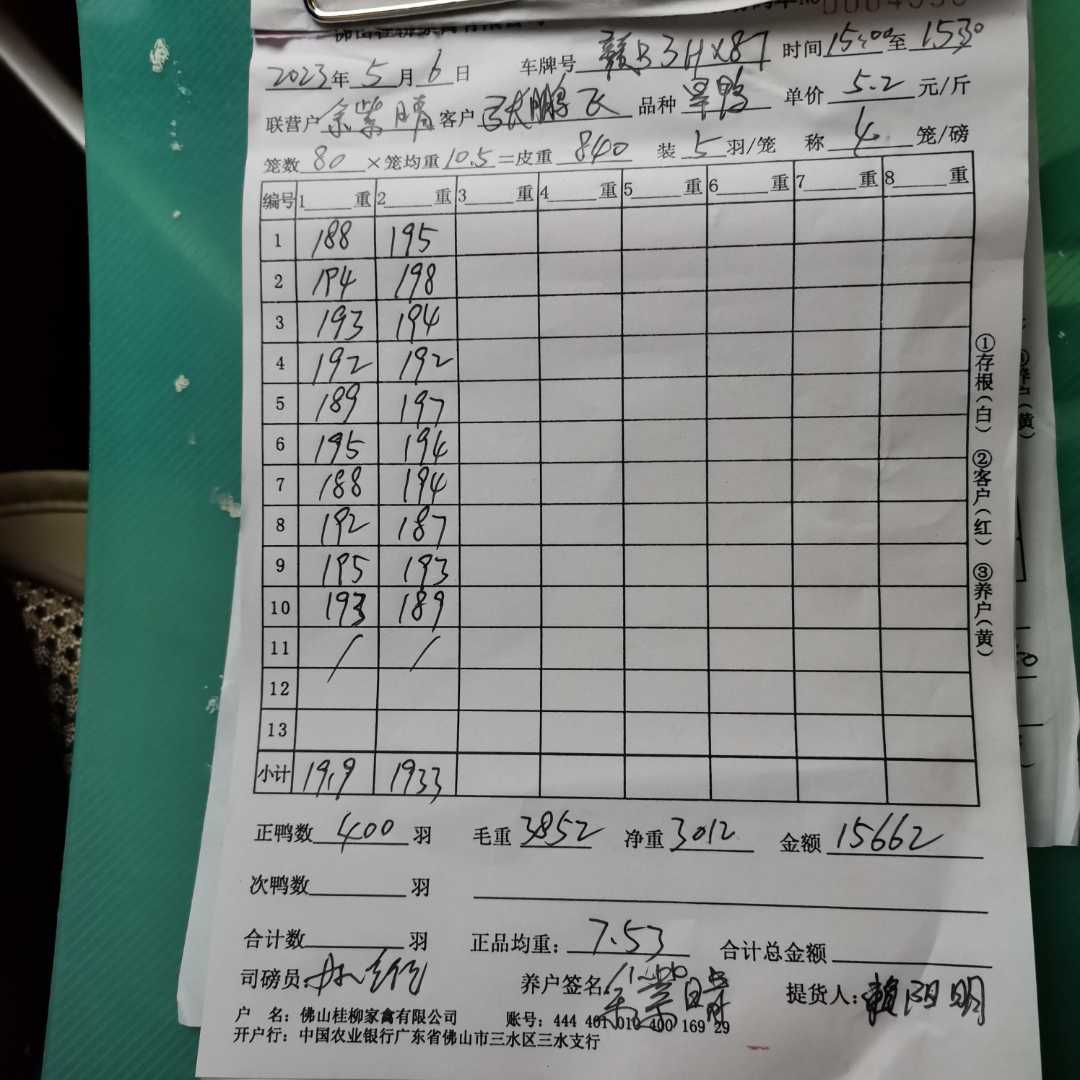 2023年5月6日 车牌号 赣B3HX87 时间15:00至1530
联营户 余紫晴 客户 张鹏飞 品种 旱鸭 单价 5.2 元/斤
笼数 80 ×笼均重 10.5 =皮重 840 装 5 羽/笼 称 4 笼/磅
编号 1 重 2 重 3 重 4 重 5 重 6 重 7 重 8 重
1 188 195
2 194 198
3 193 194
4 192 192
5 189 197
6 195 194
7 188 194
8 192 187
9 195 193
10 193 189
11 / /
12
13
小计 1919 1933
①存根(白) ②客户(红) ③养户(黄)
正鸭数 400 羽 毛重 3852 净重 3012 金额 15662
次鸭数 羽
合计数 羽 正品均重: 7.53 合计总金额
司磅员 养户签名 余紫晴 提货人: 赖阳明
户 名: 佛山桂柳家禽有限公司 账号: 444 401 010 400 169 29
开户行: 中国农业银行广东省佛山市三水区三水支行